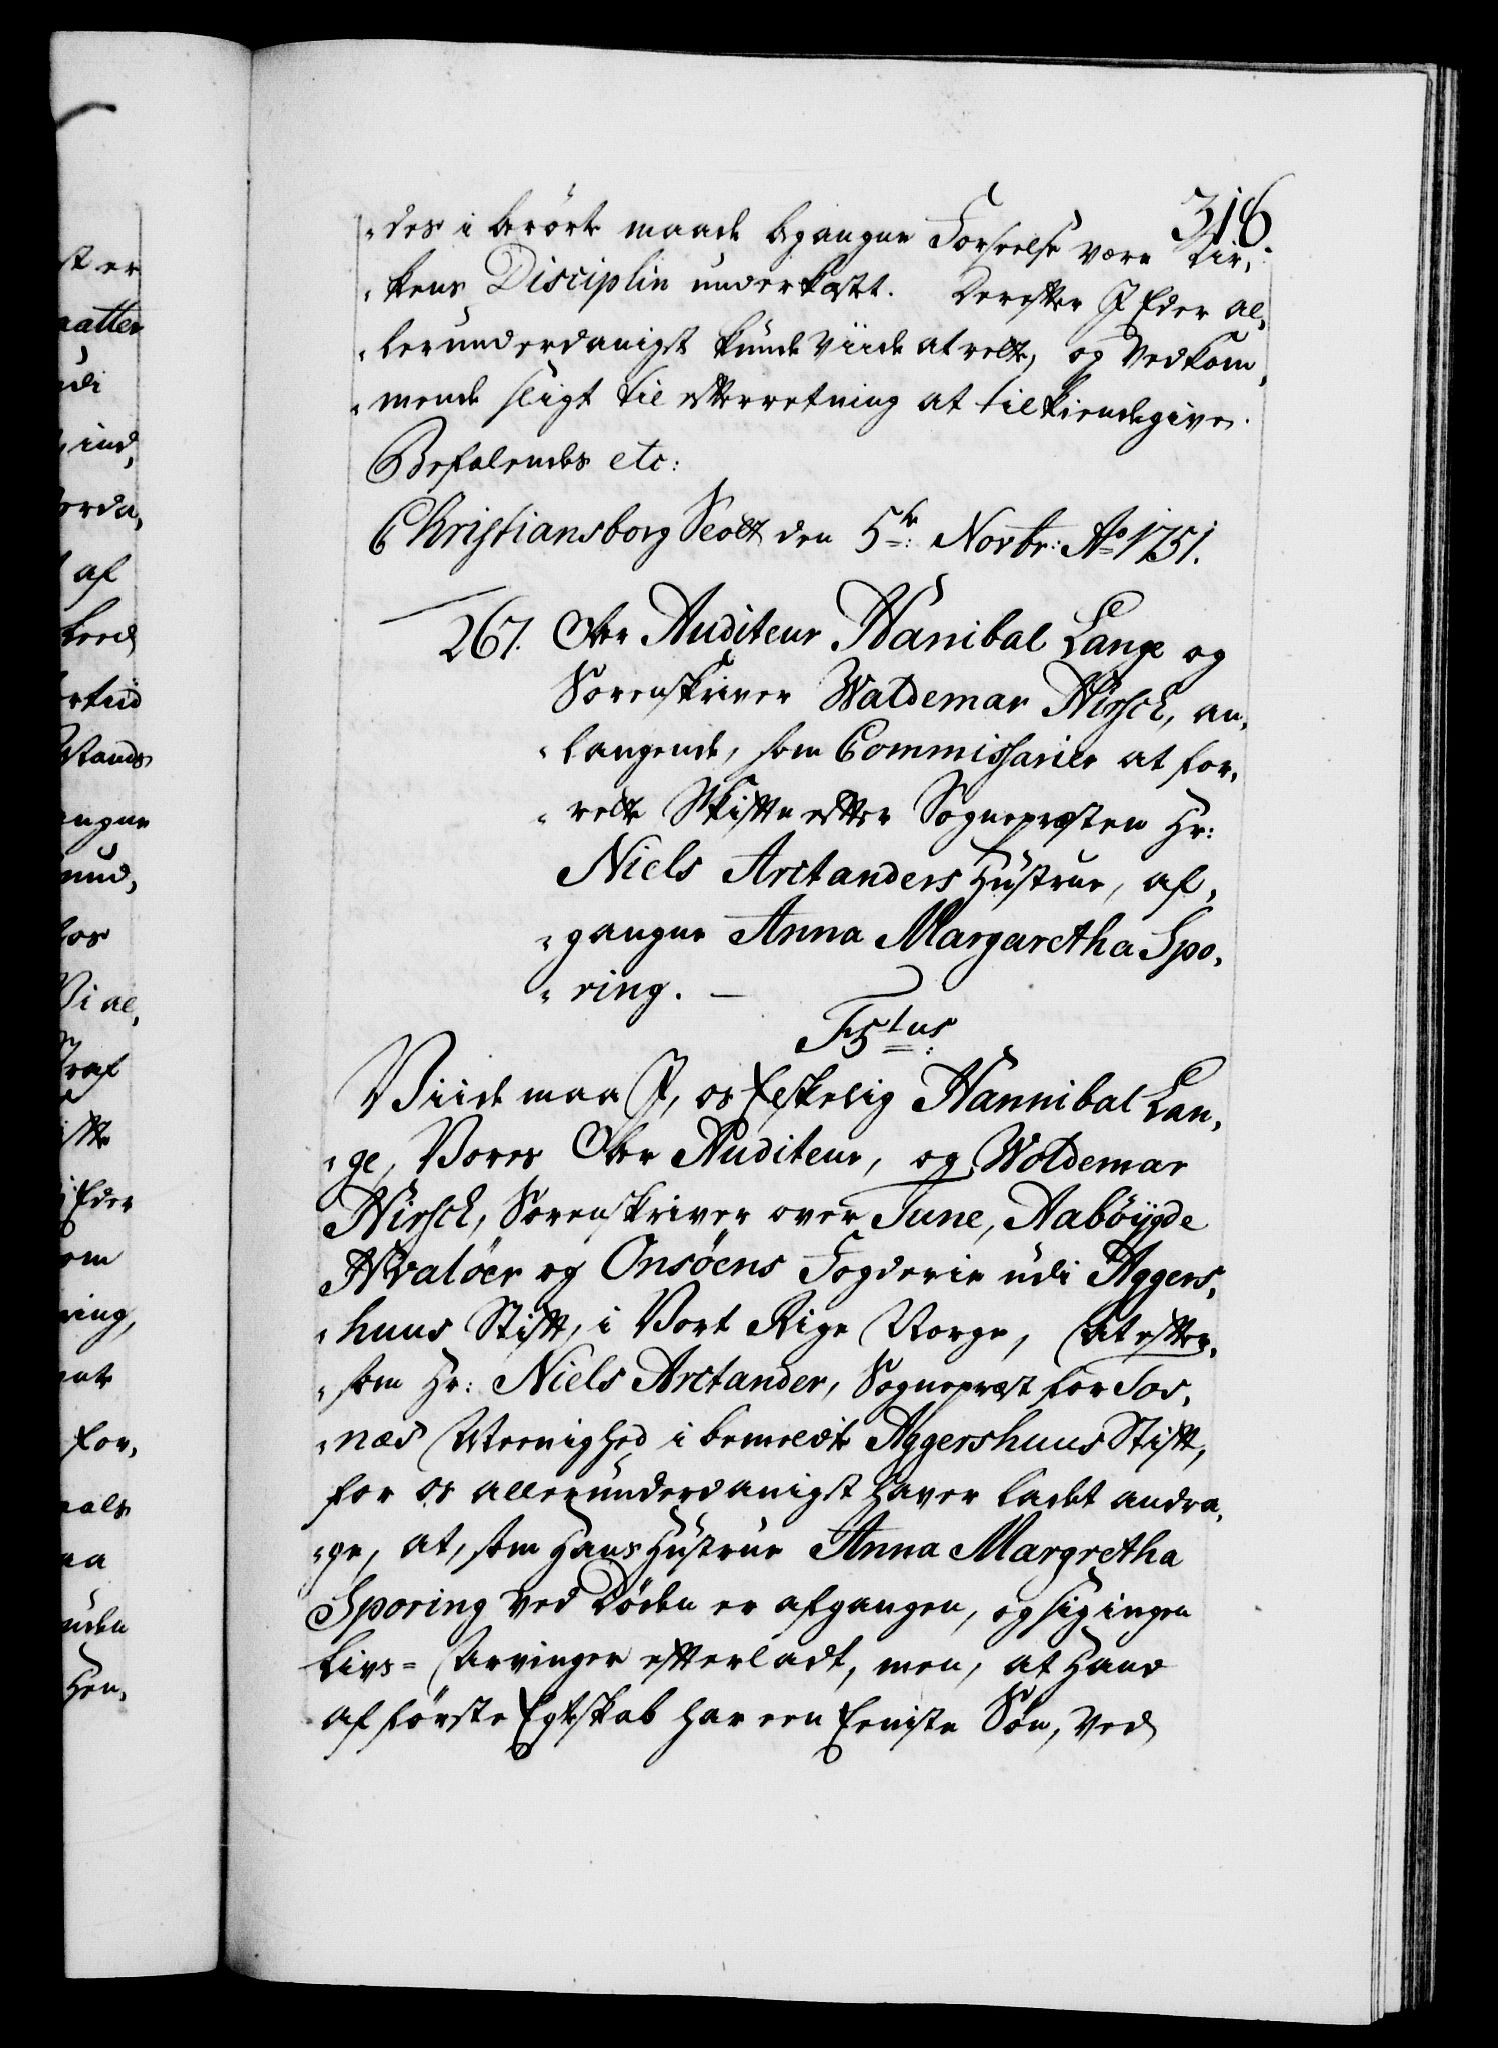 316.
"des i berörte maade begangne Forseelse være Kir,
"kens Disciplin underkastet. Derefter I Eder al,
"lerunderdanigst kunde viide at rette, og Vedkom,
"mende sligt til efterretning at tilkiendegive.
Befalendes etc:
Christiansborg Slott den 5te: Novbr: Ao 1751.
267. Ober Auditeur Hanibal Lange og
Sorenskriver Waldemar Hirsch, an,
"langende, som Commissarier at for,
"rette Skifte efter Sognepræsten Hr:
Niels Arctanders Hustrue, af,
"gangne Anna Margaretha Spo,
"ring. —
F5tus
Viide maa I, os Elskelig Hannibal Lan,
"ge, Vores Ober Auditeur, og Woldemar
Hirsch, Sorenskriver over Tune, Aaböygde
Hvalöer og Onsöens Fogderie udi Aggers,
"huus Stift, i Vort Rige Norge, at efter,
"som Hr: Niels Arctander, Sognepræst for Tos,
"næs Meenighed i bemeldte Aggershuus Stift,
for os allerunderdanigst haver ladet andra,
"ge, at, som Hans Hustrue Anna Margretha
Sporing ved Döden er afgangen, og sig ingen
Livs= Arvinger efterladt, men, at Hand
af förste Egteskab har een Eeniste Sön, ved